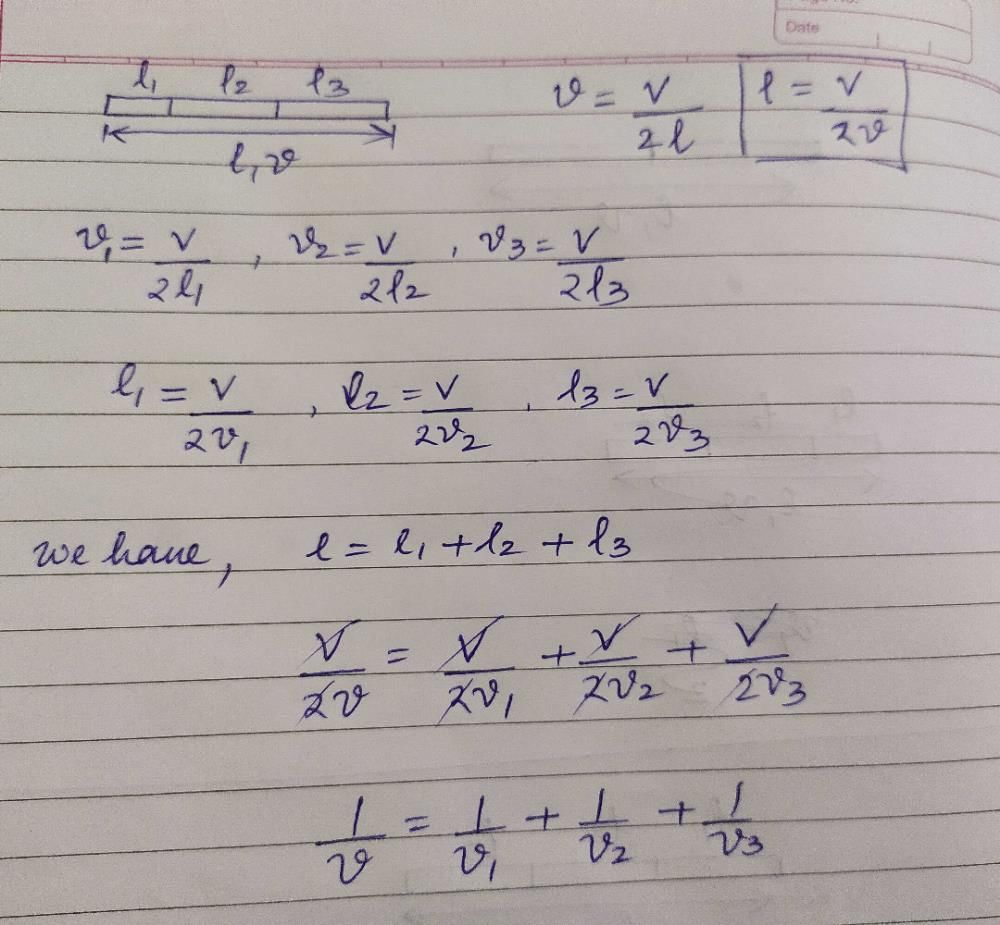 Date
l₁ l₂ l₃
l, ν
ν = V/2l l = V/2ν
ν₁ = V/2l₁ , ν₂ = V/2l₂ , ν₃ = V/2l₃
l₁ = V/2ν₁ , l₂ = V/2ν₂ , l₃ = V/2ν₃
we have, l = l₁ + l₂ + l₃
V/2ν = V/2ν₁ + V/2ν₂ + V/2ν₃
1/ν = 1/ν₁ + 1/ν₂ + 1/ν₃